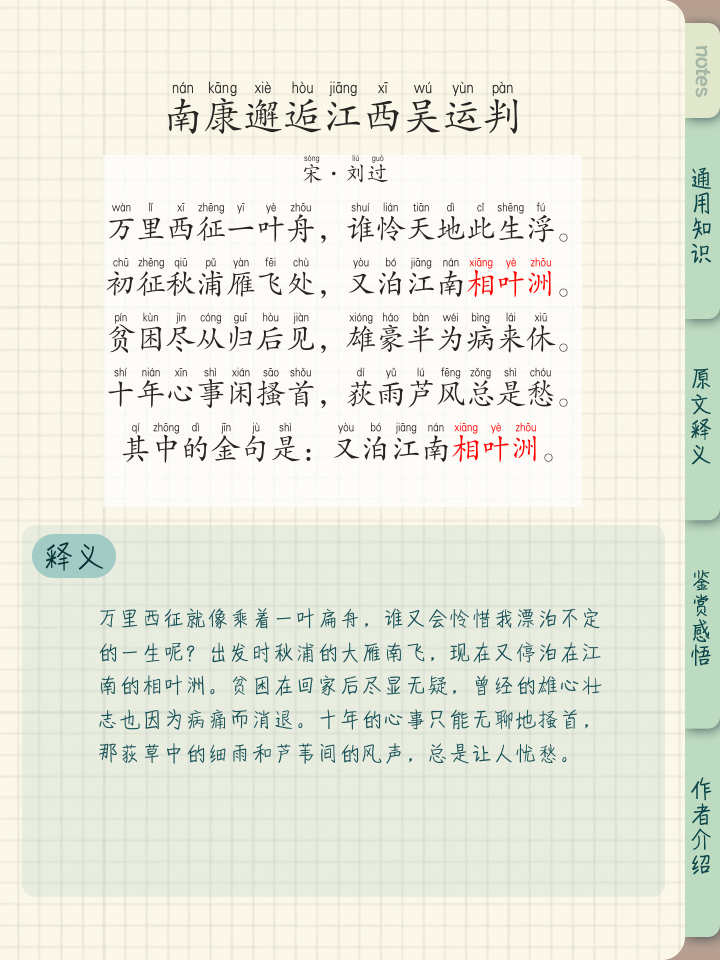 nán kāng xiè hòu jiāng xī wú yùn pàn
南康邂逅江西吴运判
sòng liú guò
宋·刘过
wàn lǐ xī zhēng yī yè zhōu shuí lián tiān dì cǐ shēng fú
万里西征一叶舟，谁怜天地此生浮。
chū zhēng qiū pǔ yàn fēi chù yòu bó jiāng nán xiāng yè zhōu
初征秋浦雁飞处，又泊江南相叶洲。
pín kùn jìn cóng guī hòu jiàn xióng háo bàn wéi bìng lái xiū
贫困尽从归后见，雄豪半为病来休。
shí nián xīn shì xián sāo shǒu dí yǔ lú fēng zǒng shì chóu
十年心事闲搔首，荻雨芦风总是愁。
qí zhōng dì jīn jù shì yòu bó jiāng nán xiāng yè zhōu
其中的金句是：又泊江南相叶洲。
释义
万里西征就像乘着一叶扁舟，谁又会怜惜我漂泊不定
的一生呢？出发时秋浦的大雁南飞，现在又停泊在江
南的相叶洲。贫困在回家后尽显无疑，曾经的雄心壮
志也因为病痛而消退。十年的心事只能无聊地搔首，
那荻草中的细雨和芦苇间的风声，总是让人忧愁。
notes
通用知识
原文释义
鉴赏感悟
作者介绍